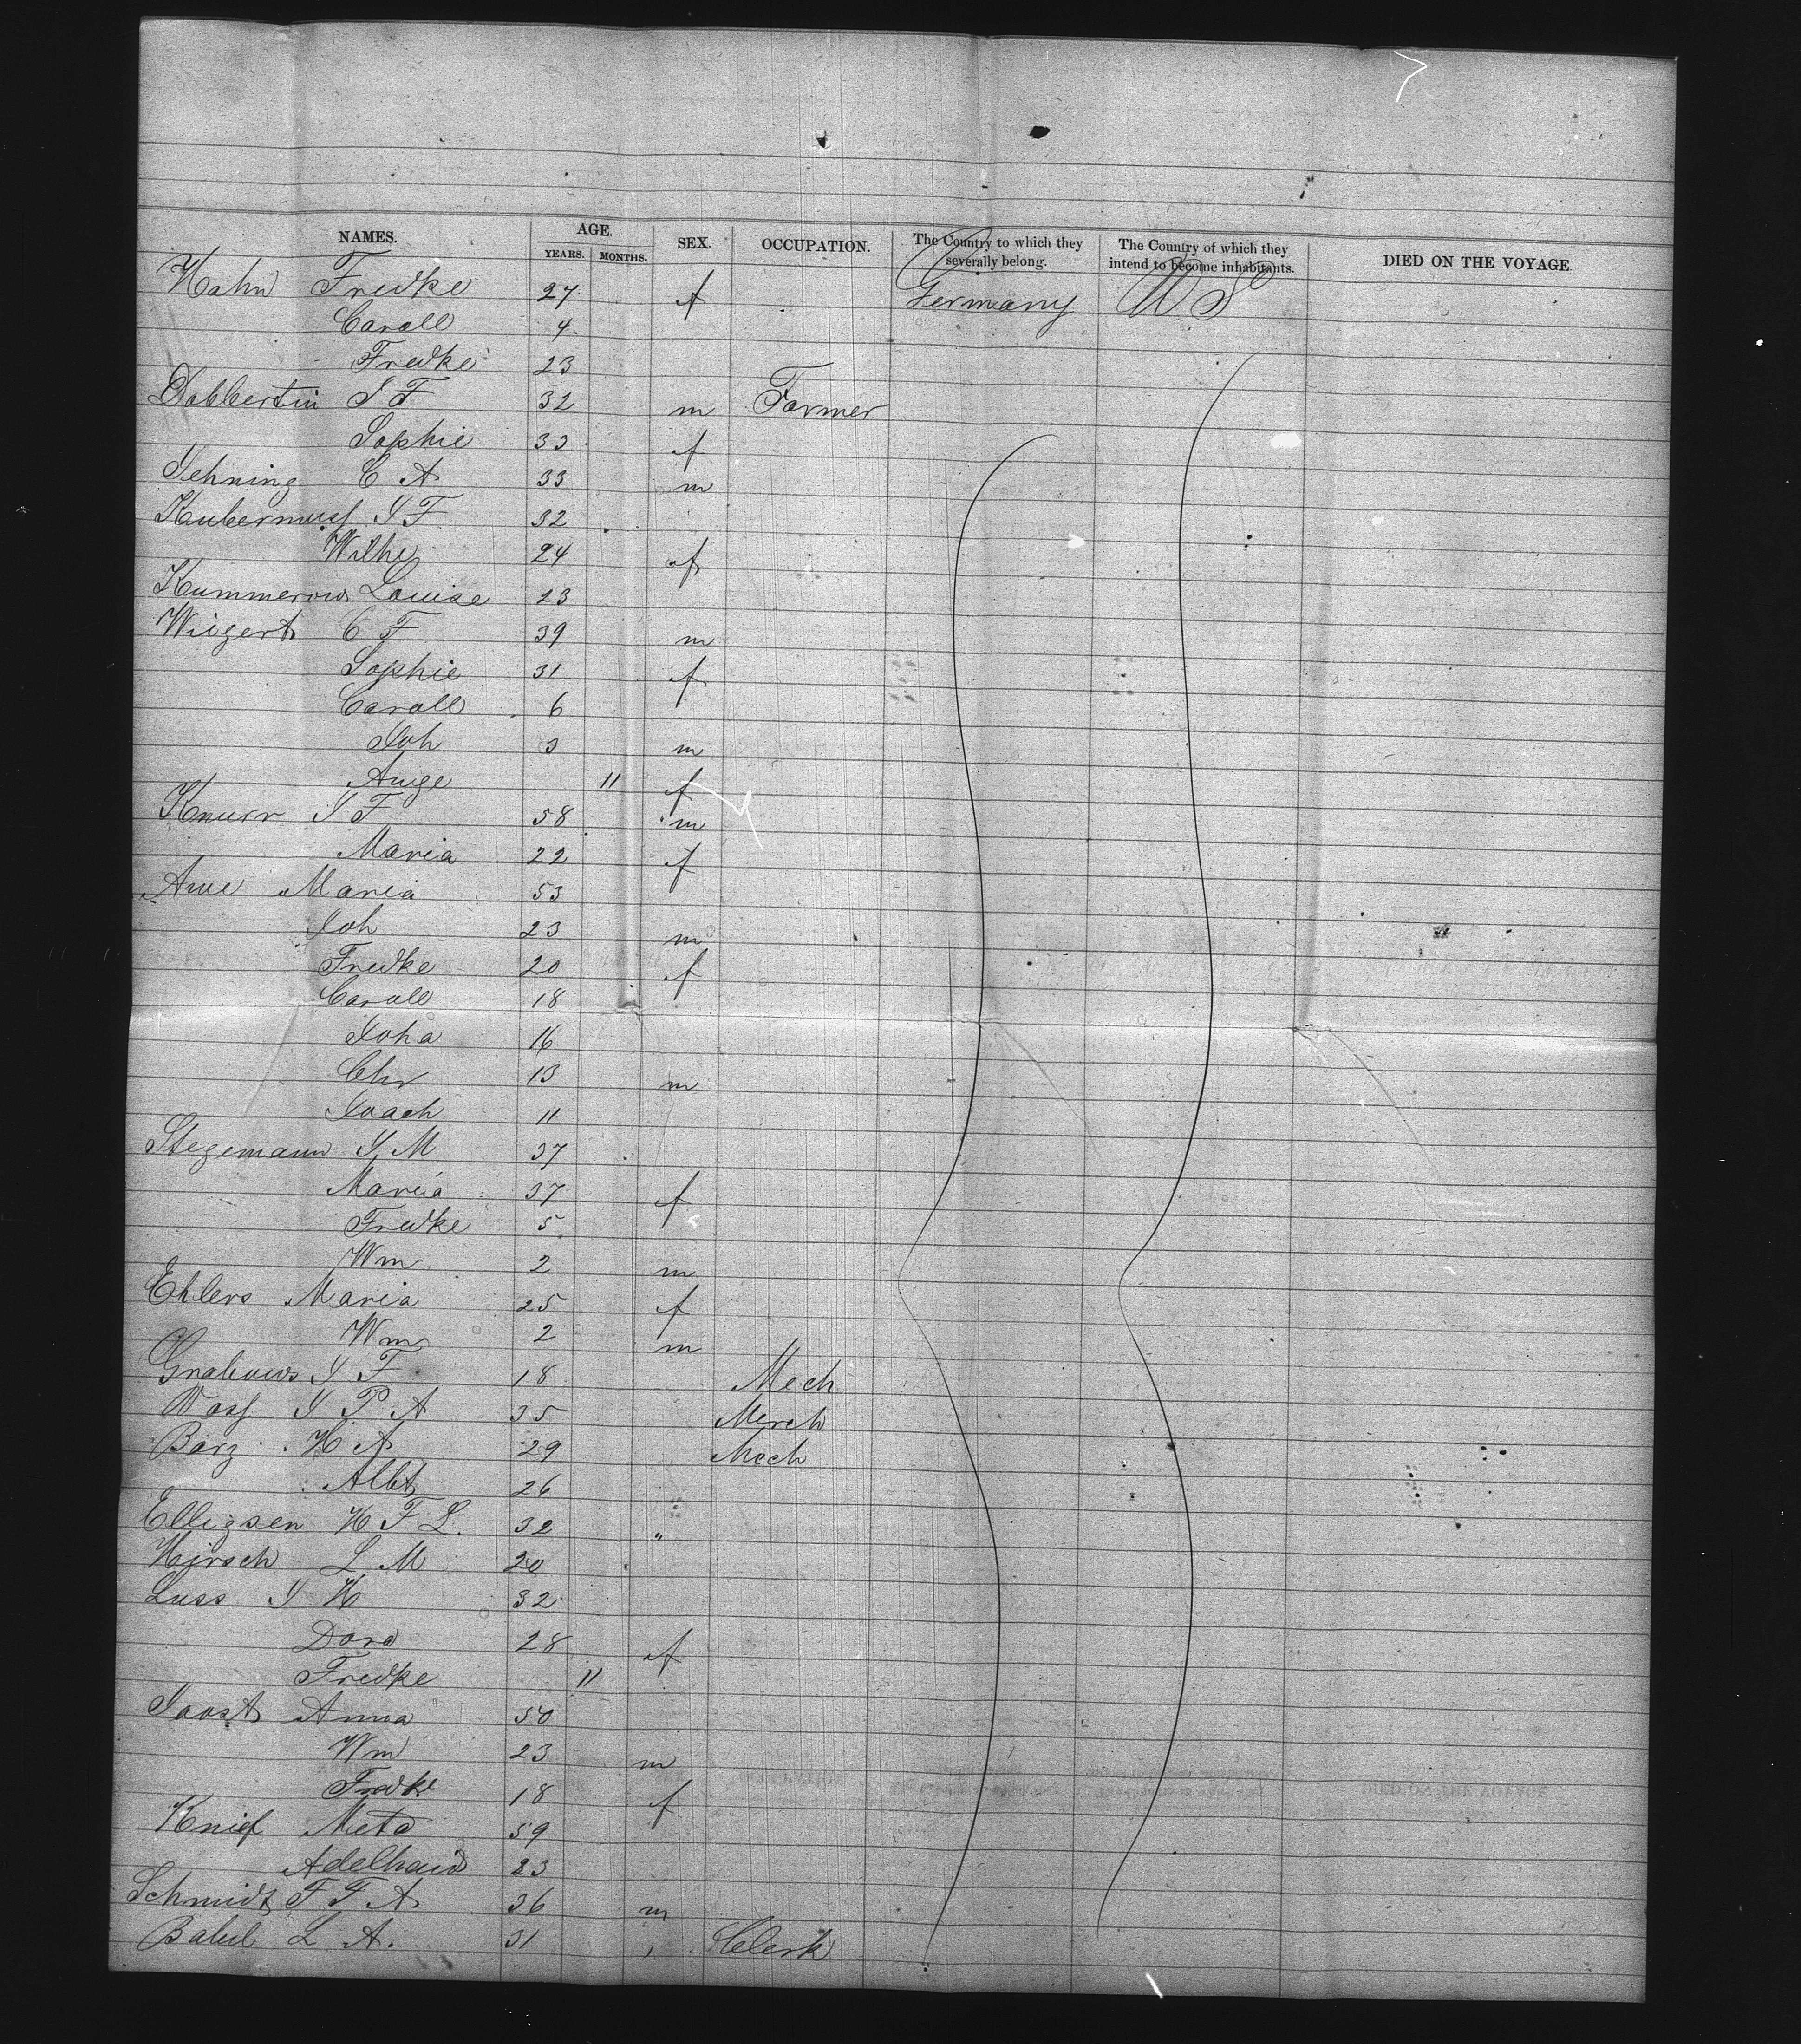 NAMES. AGE. SEX. OCCUPATION. The Country to which they severally belong. The Country of which they intend to become inhabitants. DIED ON THE VOYAGE
YEARS. MONTHS.
Hahn Fredke 27 f Germany U S
Caroll 4
Fredke 23
Dobbertin J F 32 m Farmer
Sophie 33 f
Jehning C A 33 m
J F 32
Wilhe 24 f
Kummerow Louise 23
Wiegert C F 39 m
Sophie 31 f
Caroll 6
Joh 3 m
Auge 11 f
Knurr J F 58 m
Maria 22 f
Awe Maria 53
Joh 23 m
Fredke 20 f
Caroll 18
Joha 16
Chr 13 m
Joach 11
Stegemann J M 37
Maria 37 f
Fredke 5
Wm 2 m
Ehlers Maria 25 f
Wm 2 m
Grabow J F 18 Mech
J P A 35 Merch
Barz H A 29 Mech
Albt 26
Elligsen H F L. 32 "
Hirsch L M 20
Luss J H 32
Dora 28 f
Fredke 11
Joost Anna 50
Wm 23 m
Fredke 18 f
Knief Meta 59
Adelhaid 23
Schmidt F F A 36 m
L A. 31 Clerk